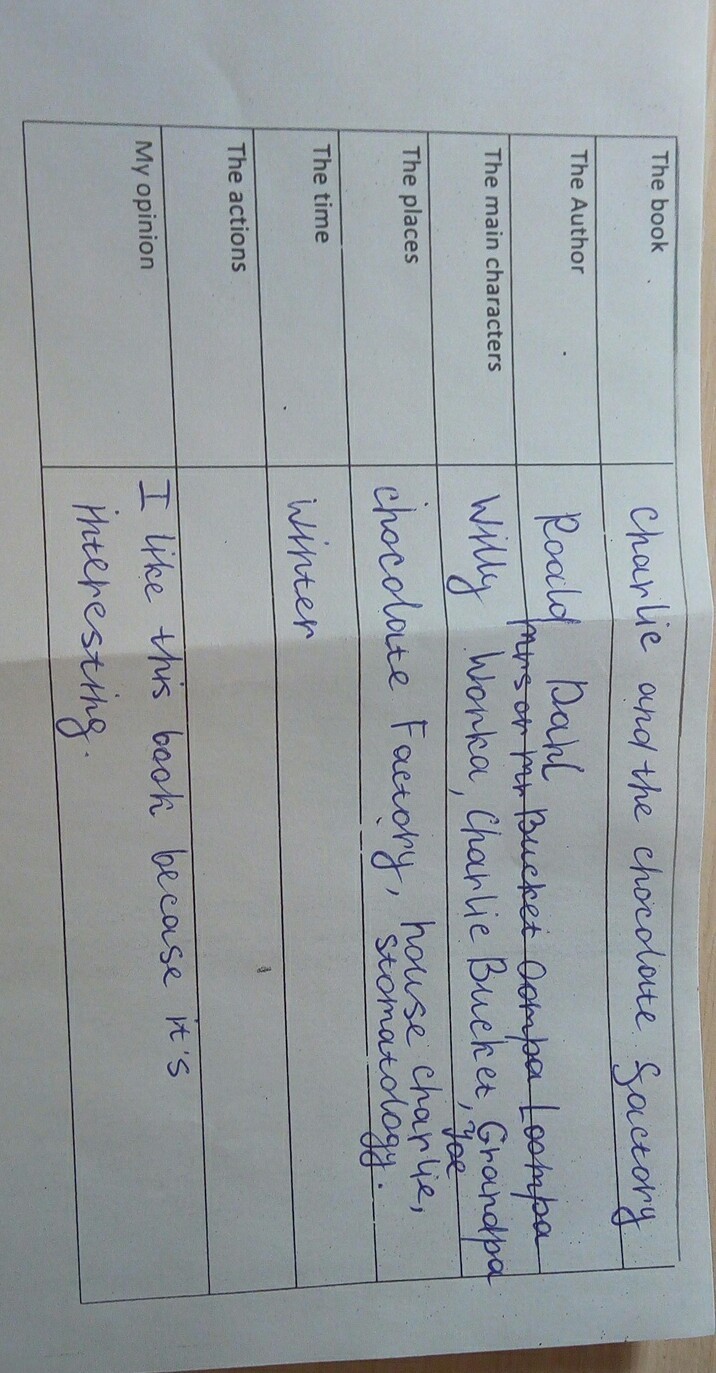 The book
Charlie and the chocolate factory
The Author
Roald Dahl
The main characters
mrs or mr Bucket Oompa Loompa
Willy Wonka, Charlie Bucket, Grandpa
Joe
The places
chocolate Factory, house charlie,
stomatology.
The time
winter
The actions
My opinion
I like this book becase it's
interesting.